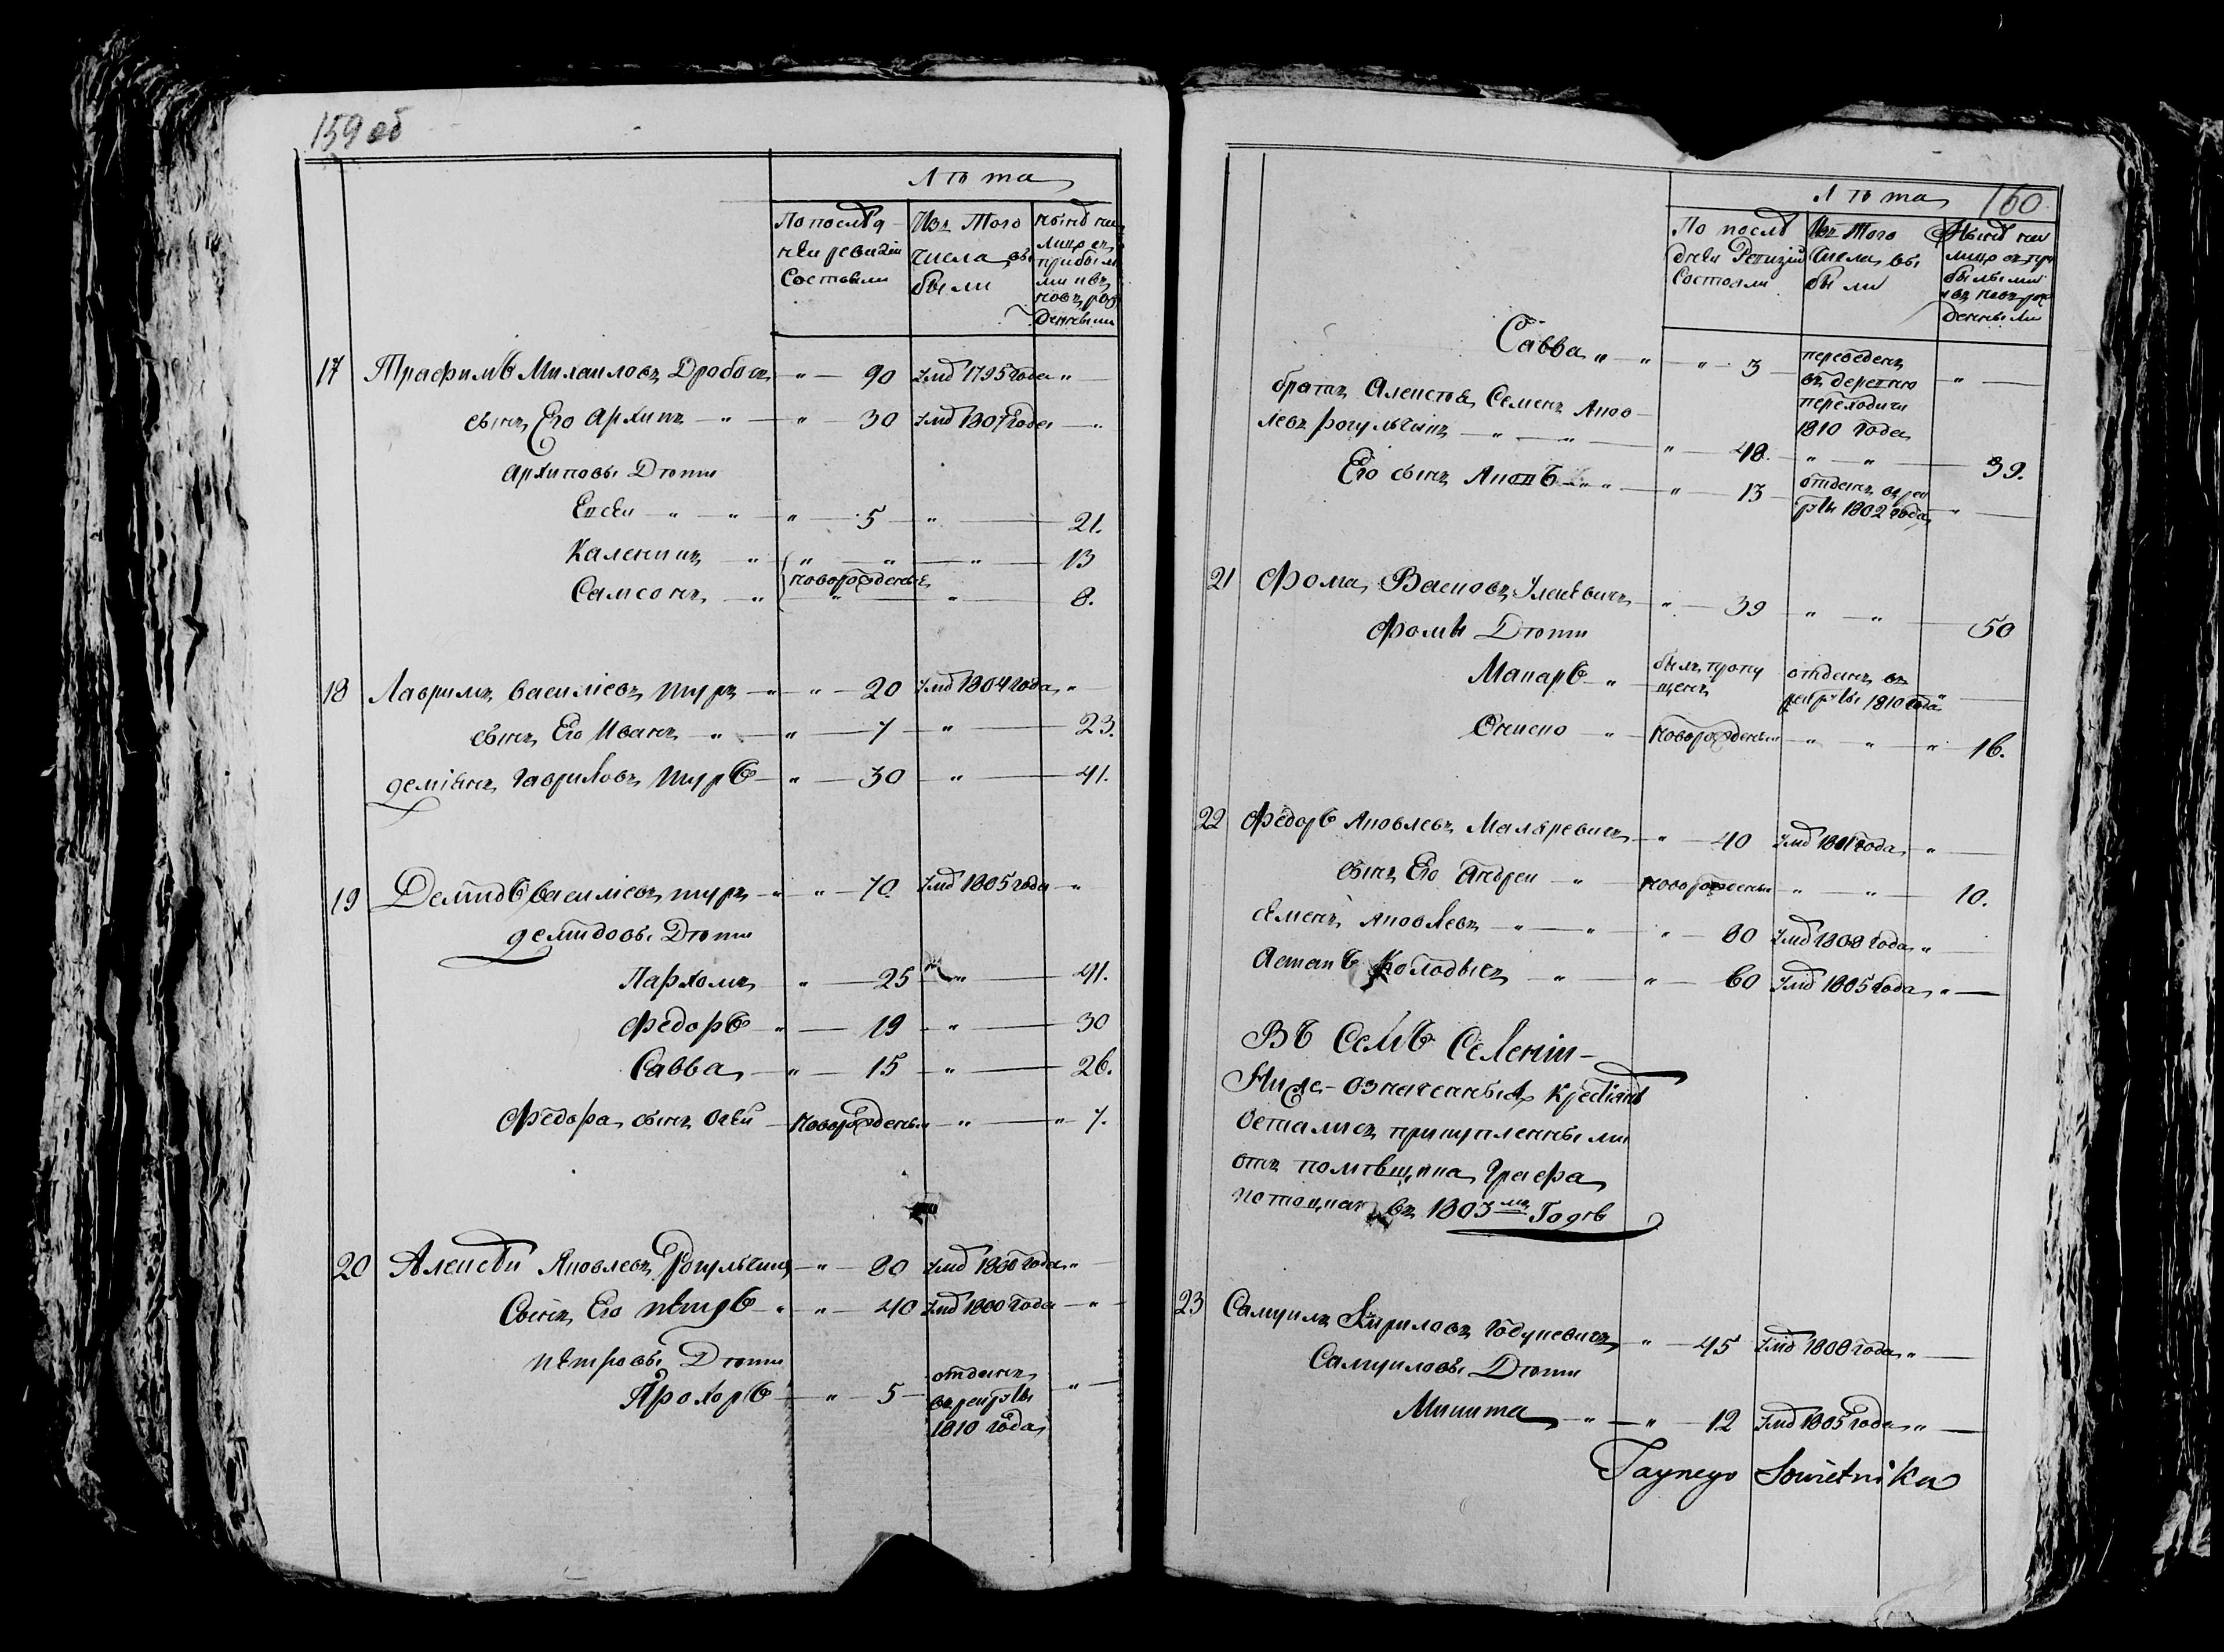 159 об
Лѣта
По послѣд-
ней ревизіи
состояли
Изъ того
числа вы
были
нынѣ на
лицо съ
прибылы
ми и въ
новъ рож
денными
17 Трафимъ Михаиловъ Дробот „ — 90 умѣ 1795 года „ —
сынъ Его Архипъ „ — „ — 30 умѣ 1807 года — „
Архиповы Дѣти
Евсей „ „ „ — 5 — „ — 21.
Каленикъ „ „ „ „ — 13
новорожденые
Самсонъ „ „ „ — 8.
18 Лавримъ Василіевъ Шуръ „ „ — 20 умѣ 1804 года „
сынъ Его Иванъ „ „ — 7 — „ — 23.
Деміянъ Гавриловъ Шуръ „ — 30 — „ — 41.
19 Демидъ Василіевъ Шуръ „ „ — 70 умѣ 1805 года „
Демидовы Дѣти
Пархомъ „ — 25 „ — 41.
Федоръ „ — 19 — „ — 30
Савва „ — 15 — „ — 26.
Федора сынъ новорожденый „ — „ 7.
20 Алексѣй Яковлевъ Рогульчикъ „ — 80 умѣ 1800 года „
Сынъ Его Пётръ „ „ — 40 умѣ 1800 года — „
Пётровы Дѣти
Прохоръ „ — 5 — отданъ
въ рекруты
1810 года „ —
160
Лѣта
По послѣ
дней Ревизіи
состояли
Изъ того
числа вы
были
Нынѣ на
лицо съ при
былыми
и въ новъ рож
денными
Савва „ „ „ 3 — переведенъ
въ деревню
1810 года „ —
братъ Алексѣя Семенъ Яков-
левъ Рогульчикъ „ „ „ — 48. „ „ — 39.
Его сынъ „ „ — 13 — отданъ въ рек
руты 1802 года „ —
21 Фома Васковъ „ — 39 „ — „ — 50
Фомы Дѣти
Макаръ „ былъ пропу
щенъ отданъ въ
рекруты 1810 года „
„ новорожденый „ „ „ 16.
22 Федоръ Яковлевъ „ — 40 умѣ 1801 года „ —
сынъ Его Андрей „ новорожденый „ — „ — 10.
Семенъ Яковлевъ „ — „ „ — 80 умѣ 1808 года „
Астапъ Колодычъ „ „ — 60 умѣ 1805 года „ —
Въ Семъ Селеніи-
Ниже-означенныя Крестіянѣ
Остались прикупленными
отъ помѣщика Графа
въ 1803мъ Годѣ
23 Самуилъ Кириловъ Годуневичъ „ — 45 умѣ 1808 года „ —
Самуиловы Дѣти
Микита „ — „ — 12 умѣ 1805 года „ —
Taynego Sowietnika